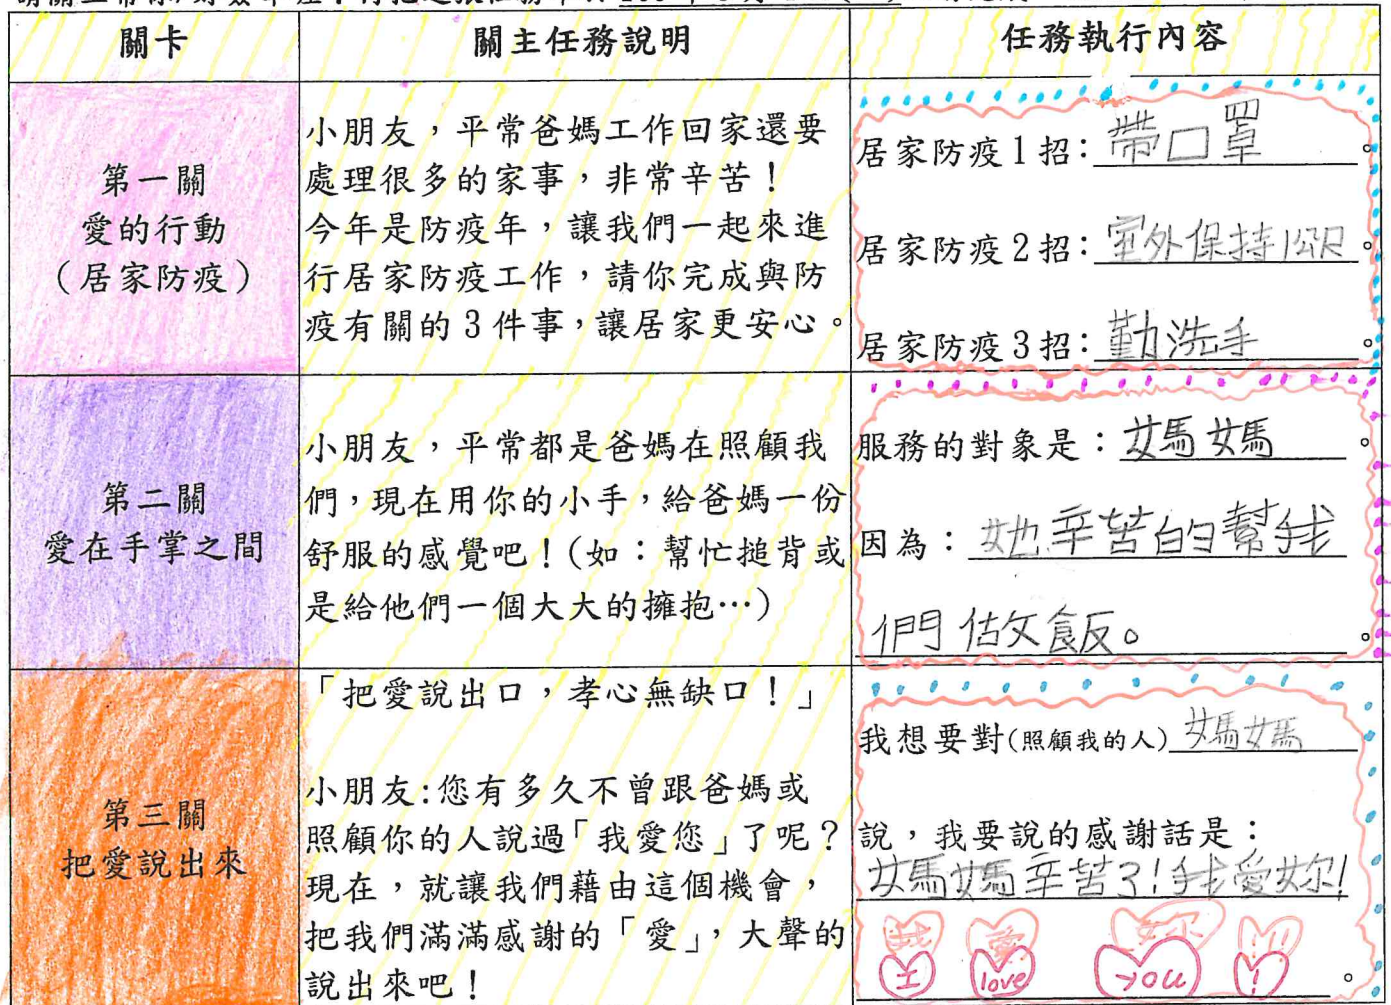 關卡
關主任務說明
任務執行內容
第一關
愛的行動
（居家防疫）
小朋友，平常爸媽工作回家還要
處理很多的家事，非常辛苦！
今年是防疫年，讓我們一起來進
行居家防疫工作，請你完成與防
疫有關的3件事，讓居家更安心。
居家防疫1招：帶口罩。
居家防疫2招：室外保持1公尺。
居家防疫3招：勤洗手。
第二關
愛在手掌之間
小朋友，平常都是爸媽在照顧我
們，現在用你的小手，給爸媽一份
舒服的感覺吧！(如：幫忙搥背或
是給他們一個大大的擁抱…)
服務的對象是：媽媽。
因為：她辛苦的幫我
們做飯。。
第三關
把愛說出來
「把愛說出口，孝心無缺口！」
小朋友:您有多久不曾跟爸媽或
照顧你的人說過「我愛您」了呢？
現在，就讓我們藉由這個機會，
把我們滿滿感謝的「愛」，大聲的
說出來吧！
我想要對(照顧我的人)媽媽
說，我要說的感謝話是：
媽媽辛苦了!我愛妳!
我 愛 妳 !!
I love you !。